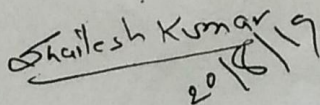 Shailesh Kumar
20/8/19